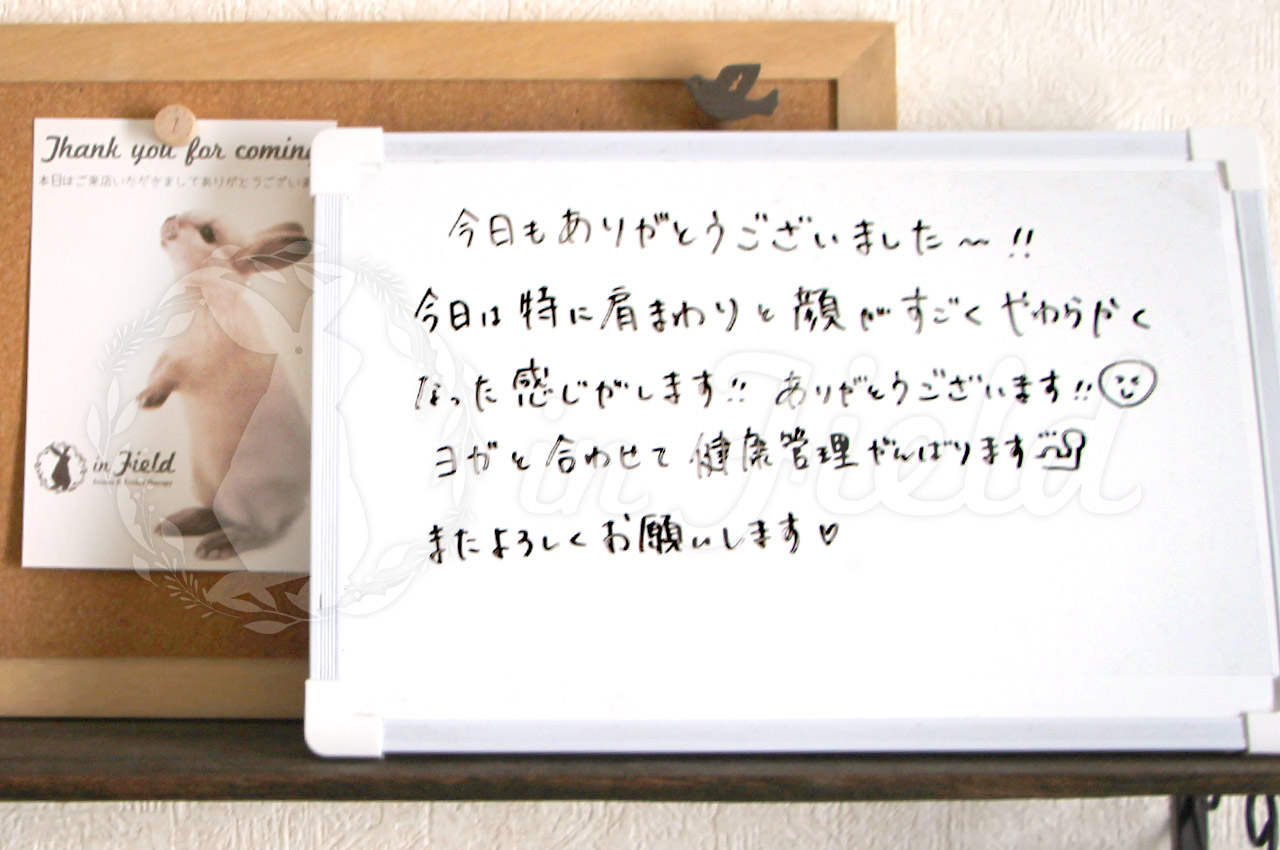 Thank you for coming
本日はご来店いただきましてありがとうございま
in Field
今日もありがとうございました〜!!
今日は特に肩まわりと顔がすごくやわらかく
なった感じがします!! ありがとうございます!!
ヨガと合わせて健康管理がんばります
またよろしくお願いします♡
in Field